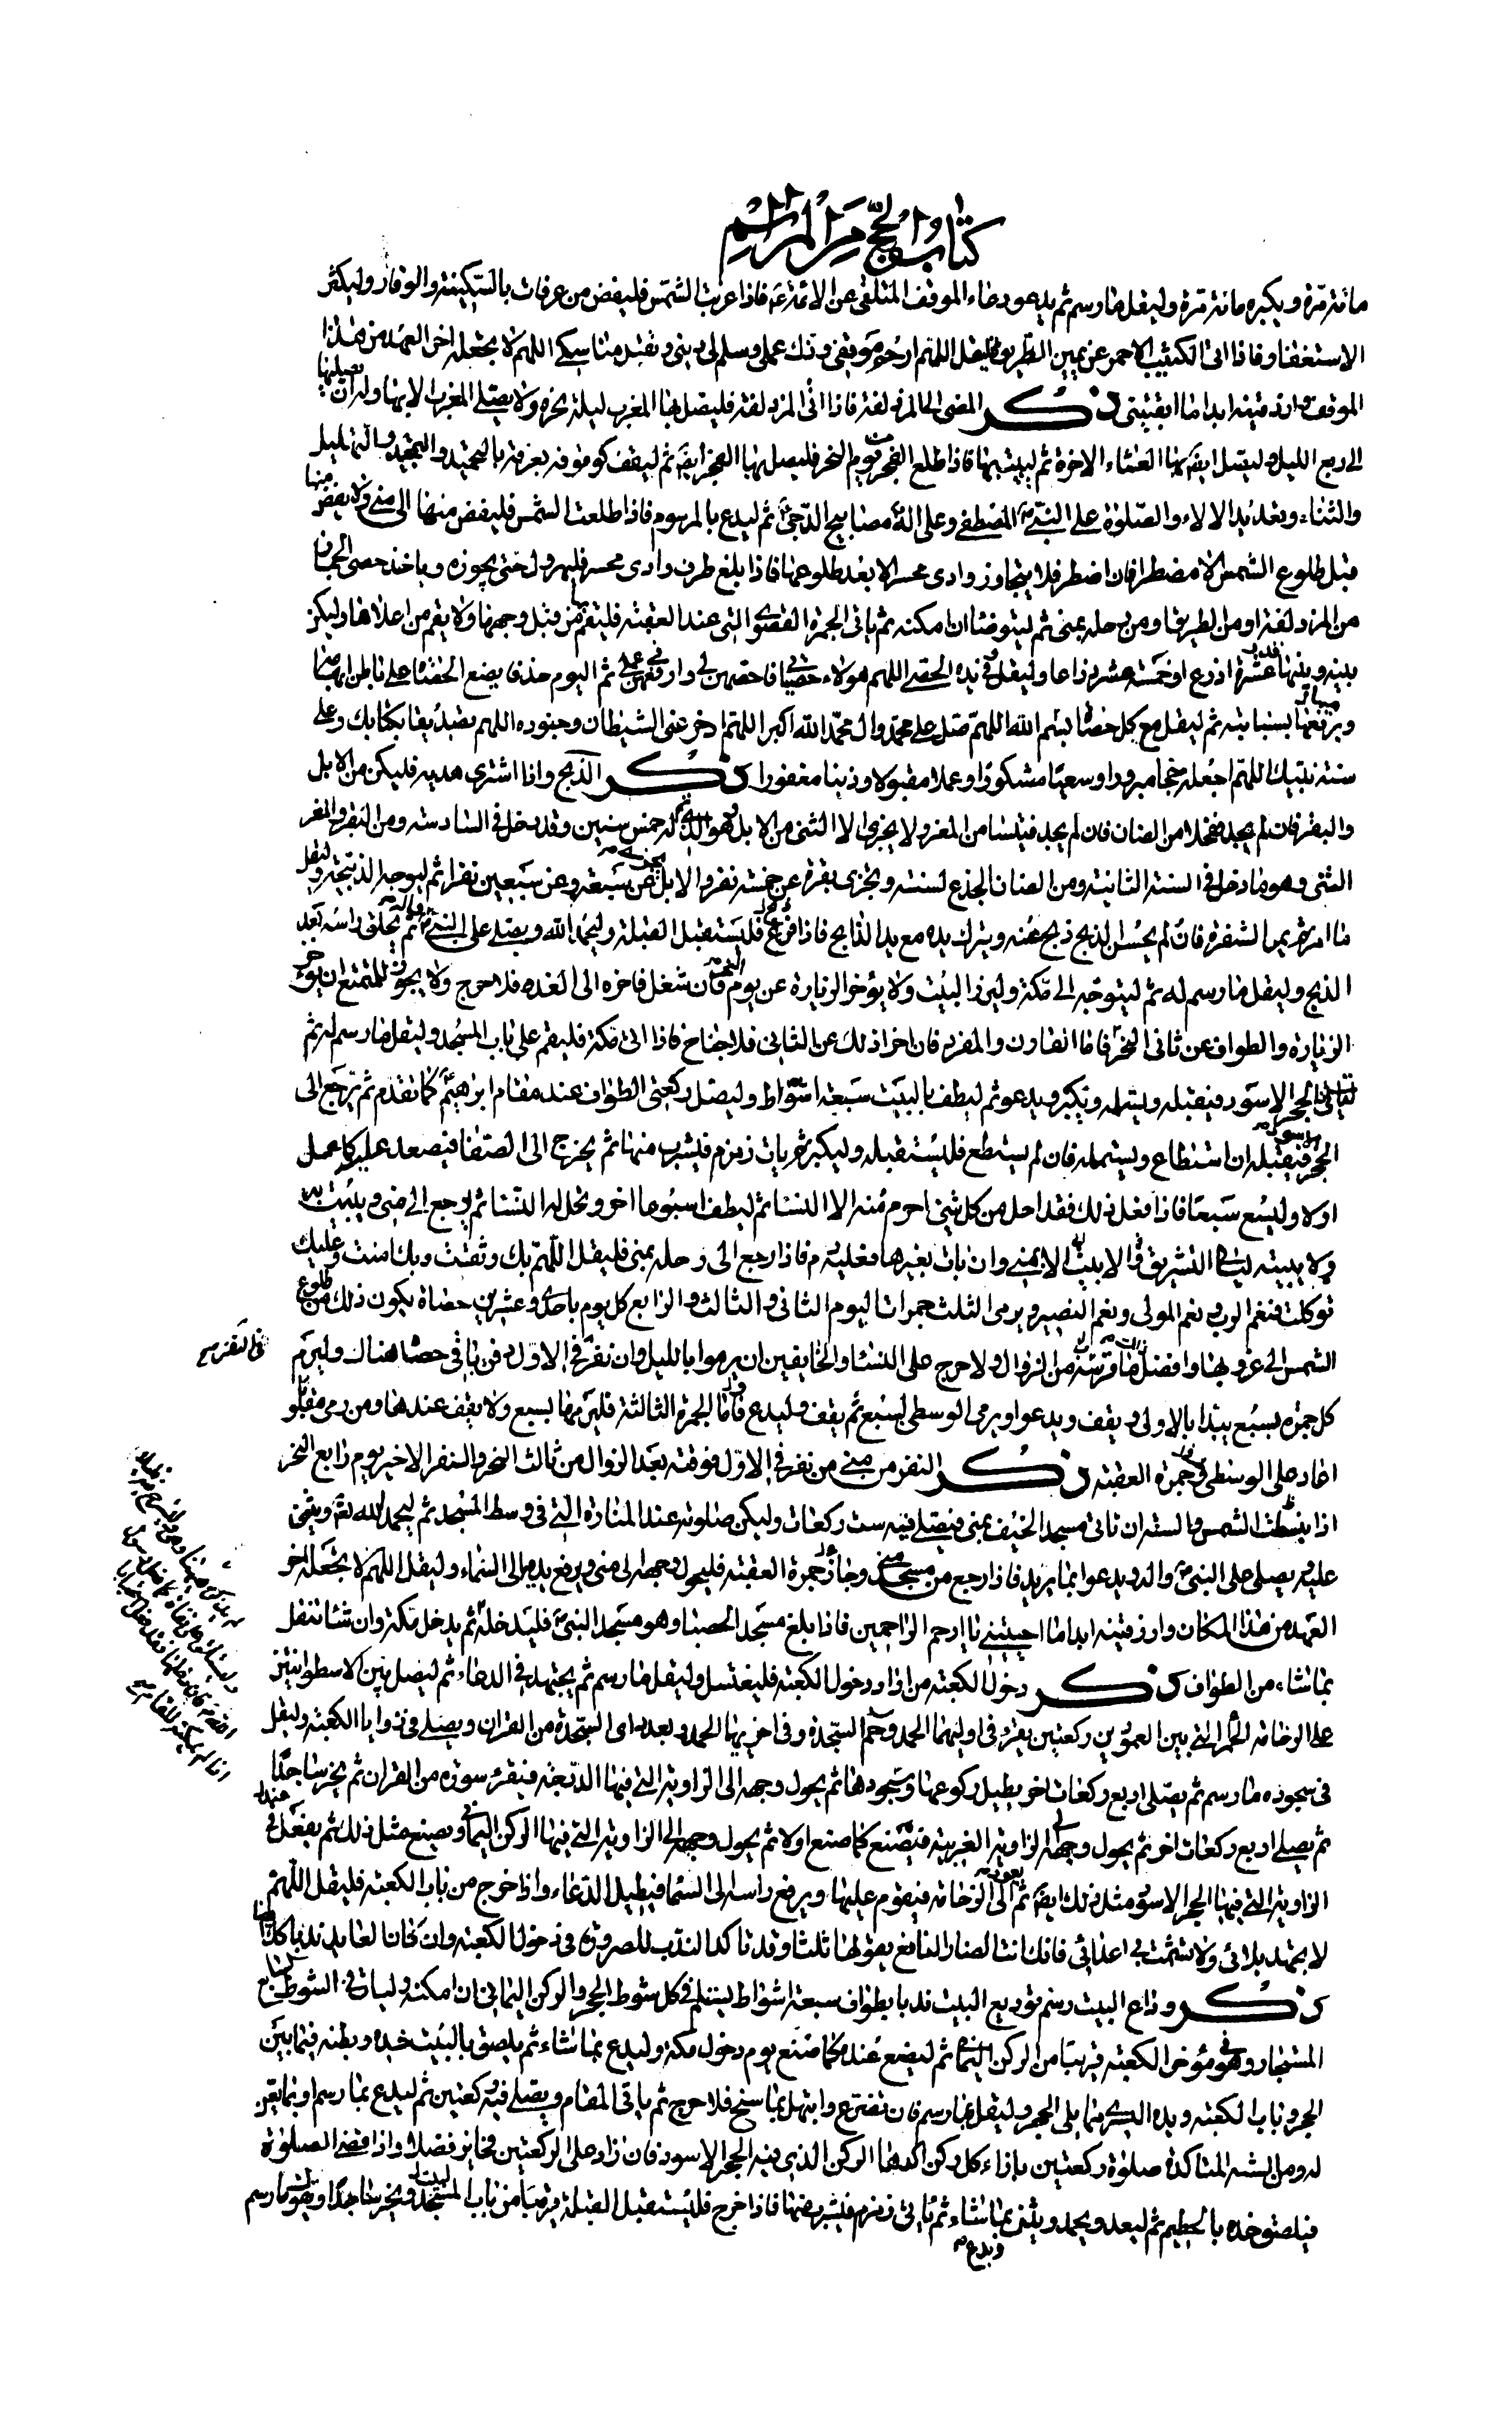 كتاب الحج من المراسم
مائة مرة ويكبره مائة مرة وليقل ما رسم ثم يدعو دعاء الموقف المتلقى عن الائمة ع فاذا غربت الشمس فليفض من عرفات بالسكينة والوقار وليكثر
الاستغفار فاذا اتى الكثيب الاحمر عن يمين الطريق فليقل اللهم ارحم موقفى وزك عملى وسلم لى دينى وتقبل مناسكى اللهم لا تجعله اخر العهد من هذا
الموقف وارزقنيه ابدا ما ابقيتنى ذكر المضى الى المزدلفة فاذا اتى المزدلفة فليصل بها المغرب ليلة النحر ولا يصلى المغرب الا بها وله ان يصليها
الى ربع الليل وليصل ايضا بها العشاء الاخرة ثم ليبيت بها فاذا طلع الفجر من يوم النحر فليصل بها الفجر ايضا ثم ليقف كوقوفه بعرفة بالتحميد والتمجيد والتهليل
والثناء وتعديد الالاء والصلوة على النبى المصطفى وعلى اله مصابيح الدجى ثم ليدع بالمرسوم فاذا طلعت الشمس فليفض منها الى منى ولا يفض منها
قبل طلوع الشمس الا مضطرا فان اضطر فلا يتجاوز وادى محسر الا بعد طلوعها فاذا بلغ طرف وادى محسر فليهرول حتى يجوزه وياخذ حصى الجمار
من المزدلفة او من الطريق او من رحله بمنى ثم ليتوضا ان امكنه ثم ياتى الجمرة القصوى التى عند العقبة فليقم من قبل وجهها ولا يقم من اعلاها وليكن
بينه وبينها قدر عشرة اذرع او خمسة عشر ذراعا وليقل وفى يده الحصى اللهم هؤلاء حصياتى فاحصهن لى وارفعهن فى عملى ثم اليوم حذفا يضع الحصاة على باطن ابهامه
ويرفعها بسبابته ثم ليقل مع كل حصاة بسم الله اللهم صل على محمد وال محمد الله اكبر اللهم ادحر عنى الشيطان وجنوده اللهم تصديقا بكتابك وعلى
سنة نبيك اللهم اجعله حجا مبرورا وسعيا مشكورا وعملا مقبولا وذنبا مغفورا ذكر الذبح واذا اشترى هديه فليكن من الابل
والبقر فان لم يجد فحلا من الضان فان لم يجد فتيسا من المعز ولا يجزى الا الثنى من الابل وهو الذى له خمس سنين وقد دخل فى السادسة ومن البقر والمعز
الثنى وهو ما دخل فى السنة الثانية ومن الضان الجذع لسنته وتجزى بقرة عن خمسة نفر والابل يجزى عن سبعة وعن سبعين نفرا ثم ليوجه الذبيحة وليقل
ما امر ثم يمر الشفرة فان لم يحسن الذبح ذبح عنه ويترك يده مع يد الذابح فاذا فرغ فليستقبل القبلة وليحمد الله ويصلى على النبى واله ثم يحلق راسه بعد
الذبح وليقل ما رسم له ثم ليتوجه الى مكة وليزر البيت ولا يؤخر الزيارة عن يوم النحر فان شغل فاخره الى الغد فلا حرج ولا يجوز للمتمتع ان يؤخر
الزيارة والطواف عن ثانى النحر فاما القارن والمفرد فان اخرا ذلك عن الثانى فلا جناح فاذا اتى مكة فليقم على باب المسجد وليقل ما رسم له ثم
لياتى الحجر الاسود فيقبله ويستلمه ويكبر ويدعو ثم ليطف بالبيت سبعة اشواط وليصل ركعتى الطواف عند مقام ابراهيم كما تقدم ثم يرجع الى
الحجر الاسود فيقبله ان استطاع ويستلمه فان لم يستطع فليستقبله وليكبر ثم يات زمزم فليشرب منها ثم يخرج الى الصفا فيصعد عليه كما عمل
اولا وليسع سبعا فاذا فعل ذلك فقد احل من كل شئ احرم منه الا النساء ثم ليطف اسبوعا اخر وتحل له النساء ثم يرجع الى منى ويبيت بها
ولا يبيته ليالى التشريق الا بمنى وان بات بغيرها فعليه دم فاذا رجع الى رحله بمنى فليقل اللهم بك وثقت وبك امنت وعليك
توكلت فنعم الرب ونعم المولى ونعم النصير ويرمى الثلث جمرات اليوم الثانى والثالث والرابع كل يوم باحدى وعشرين حصاة يكون ذلك من طلوع
الشمس الى غروبها وافضل ما قرب من الزوال ولا حرج على النساء والخايفين ان يرموا بالليل وان نفر فى الاول دفن باقى حصاه هناك وليرم
كل جمرة بسبع يبتدا بالاولى ويقف ويدعو ويرمى الوسطى بسبع ثم يقف وليدع فاما الجمرة الثالثة فليرمها بسبع ولا يقف عندها ومن رمى مقلوبا
اعاد على الوسطى وجمرة العقبة ذكر النفر من منى من نفر فى الاول فوقته بعد الزوال من ثالث النحر والنفر الاخير يوم رابع النحر
اذا انبسطت الشمس والسنة ان تاتى مسجد الخيف بمنى فيصلى فيه ست ركعات وليكن صلوته عند المنارة التى فى وسط المسجد ثم ليحمد الله تعالى ويثنى
عليه ويصلى على النبى واله ويدعو بما يريد فاذا رجع من مسجد منى وجاز جمرة العقبة فليحول وجهه الى منى ويرفع يديه الى السماء وليقل اللهم لا تجعله اخر
العهد من هذا المكان وارزقنيه ابدا ما احييتنى يا ارحم الراحمين فاذا بلغ مسجد الحصبا وهو مسجد النبى فليدخله ثم يدخل مكة وان شاء تنفل
بما شاء من الطواف ذكر دخول الكعبة من اراد دخول الكعبة فليغتسل وليقل ما رسم ثم يجتهد فى الدعاء ثم ليصل بين الاسطوانتين
على الرخامة الحمراء التى بين العمودين ركعتين يقرء فى اوليهما الحمد وحم السجدة وفى اخريهما الحمد وبعدد اى السجدة من القران ويصلى فى زوايا الكعبة وليقل
فى سجوده ما رسم ثم يصلى اربع ركعات اخر يطيل ركوعها وسجودها ثم يحول وجهه الى الزاوية التى فيها الدرجة فيقرء سورة من القران ثم يخر ساجدا
ثم يصلى اربع ركعات اخر ثم يحول وجهه الى الزاوية الغربية فيصنع كما صنع اولا ثم يحول وجهه الى الزاوية التى فيها الركن اليمانى ويصنع مثل ذلك ثم يفعل فى
الزاوية التى فيها الحجر الاسود مثل ذلك ايضا ثم يعود الى الرخامة فيقوم عليها ويرفع راسه الى السماء فيطيل الدعاء واذا خرج من باب الكعبة فليقل اللهم
لا تجهد بلائى ولا تشمت بى اعدائى فانك انت الضار النافع يقولها ثلثا وقد تاكد الندب للصرورة فى دخول الكعبة وان كان
ذكر وداع البيت رسم توديع البيت ندبا يطواف سبعة اشواط ليستلم فى كل شوط الحجر والركن اليمانى ان امكنه وليات فى الشوط السابع
المستجار وهو فى مؤخر الكعبة قريبا من الركن اليمانى ثم ليصنع عنده كما صنع يوم دخول مكة وليدع بما شاء ثم يلصق بالبيت خده وبطنه فيما بين
الحجر وباب الكعبة ويده اليسرى مما يلى الحجر وليقل ما رسم فان تضرع وابتهل بما سنح فلا حرج ثم ياتى المقام ويصلى فيه ركعتين ثم ليدع بما رسم او بما يعن
له ومن السنة المتاكدة صلوة ركعتين بازاء كل ركن اكدها الركن الذى فيه الحجر الاسود فان زاد على الركعتين فحايز فضلا واذا قضى الصلوة
فيلصق خده بالحطيم ثم ليعد ويحمد ويثنى بما شاء ثم ياتى زمزم فليشرب منها فاذا خرج فليستقبل القبلة قريبا من باب المسجد ويخر ساجدا ويقول ما رسم
ويدع